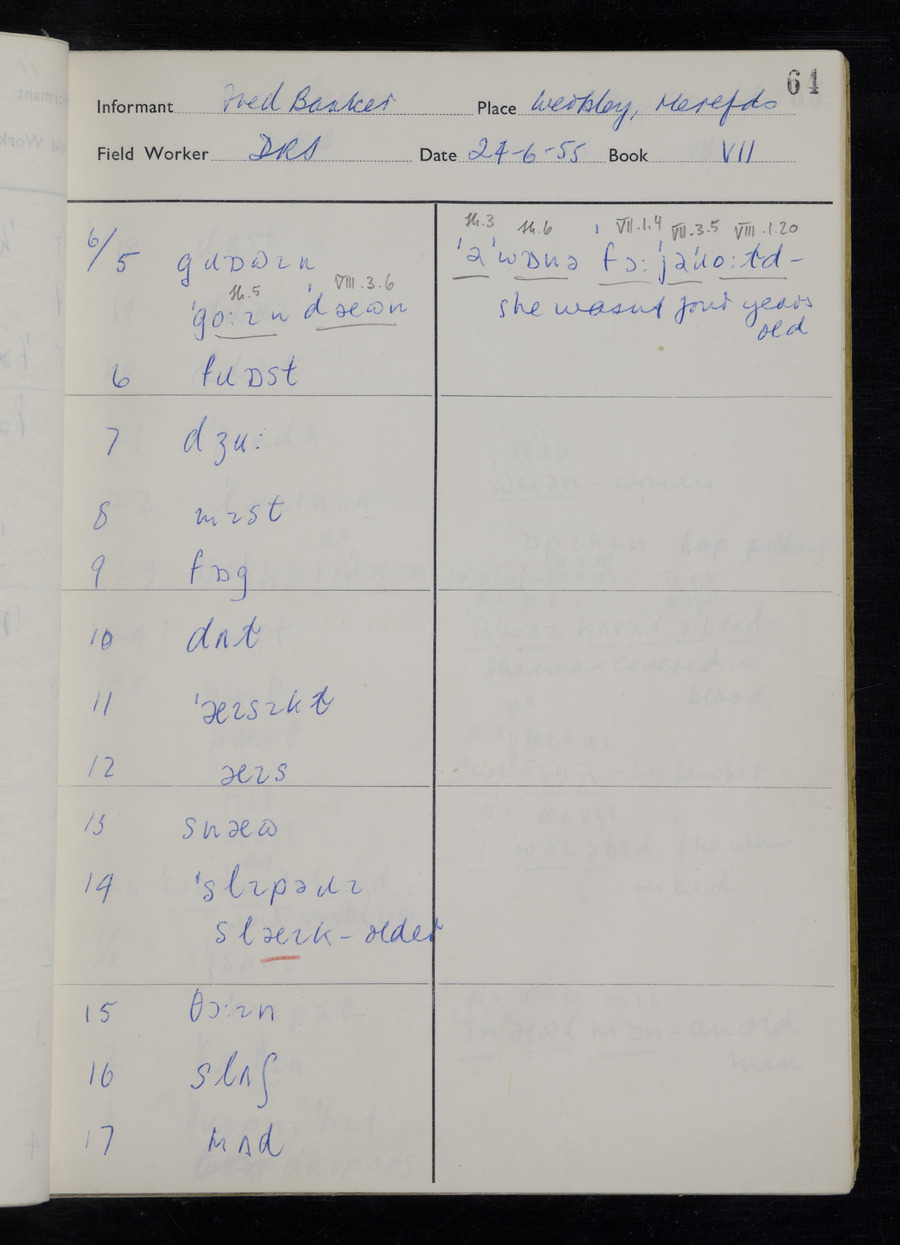 64
Informant Fred Banker Place Weobley, Herefds
Field Worker DRS Date 24-6-55 Book VII
6/5
ˈgo:ɪn ˈdæʊn
IX.5 VIII.3.6
6 fɹɒst
7 dʒu:
8 mɪst
9 fɒg
10 dʌt
11 ˈæɪsɪkł
12 æɪs
13 snæʊ
14 ˈslɪpəɹɪ
slæɪk – older
15 θɔ:ɪn
16 slʌʃ
17 mʌd
VII.1.4 VII.3.5 VIII.1.20
she wasn't four years
old